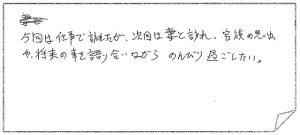 今回は仕事で訪れたが、次回は妻と訪れ、家族の思い出
や、将来の事を語り合いながら のんびり過ごしたい。